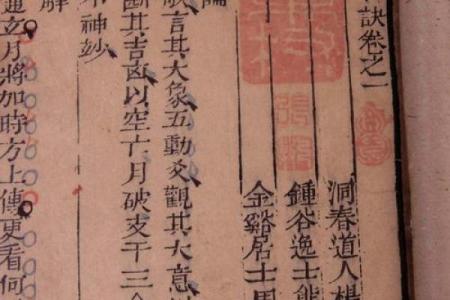 訣卷之一
洞春道人楊
鍾谷逸士熊
金谿居士周
論
言其大象五動爻觀其大意
斷其吉凶以空亡月破支干三合
神妙
解
立月將加時方上傳更看何